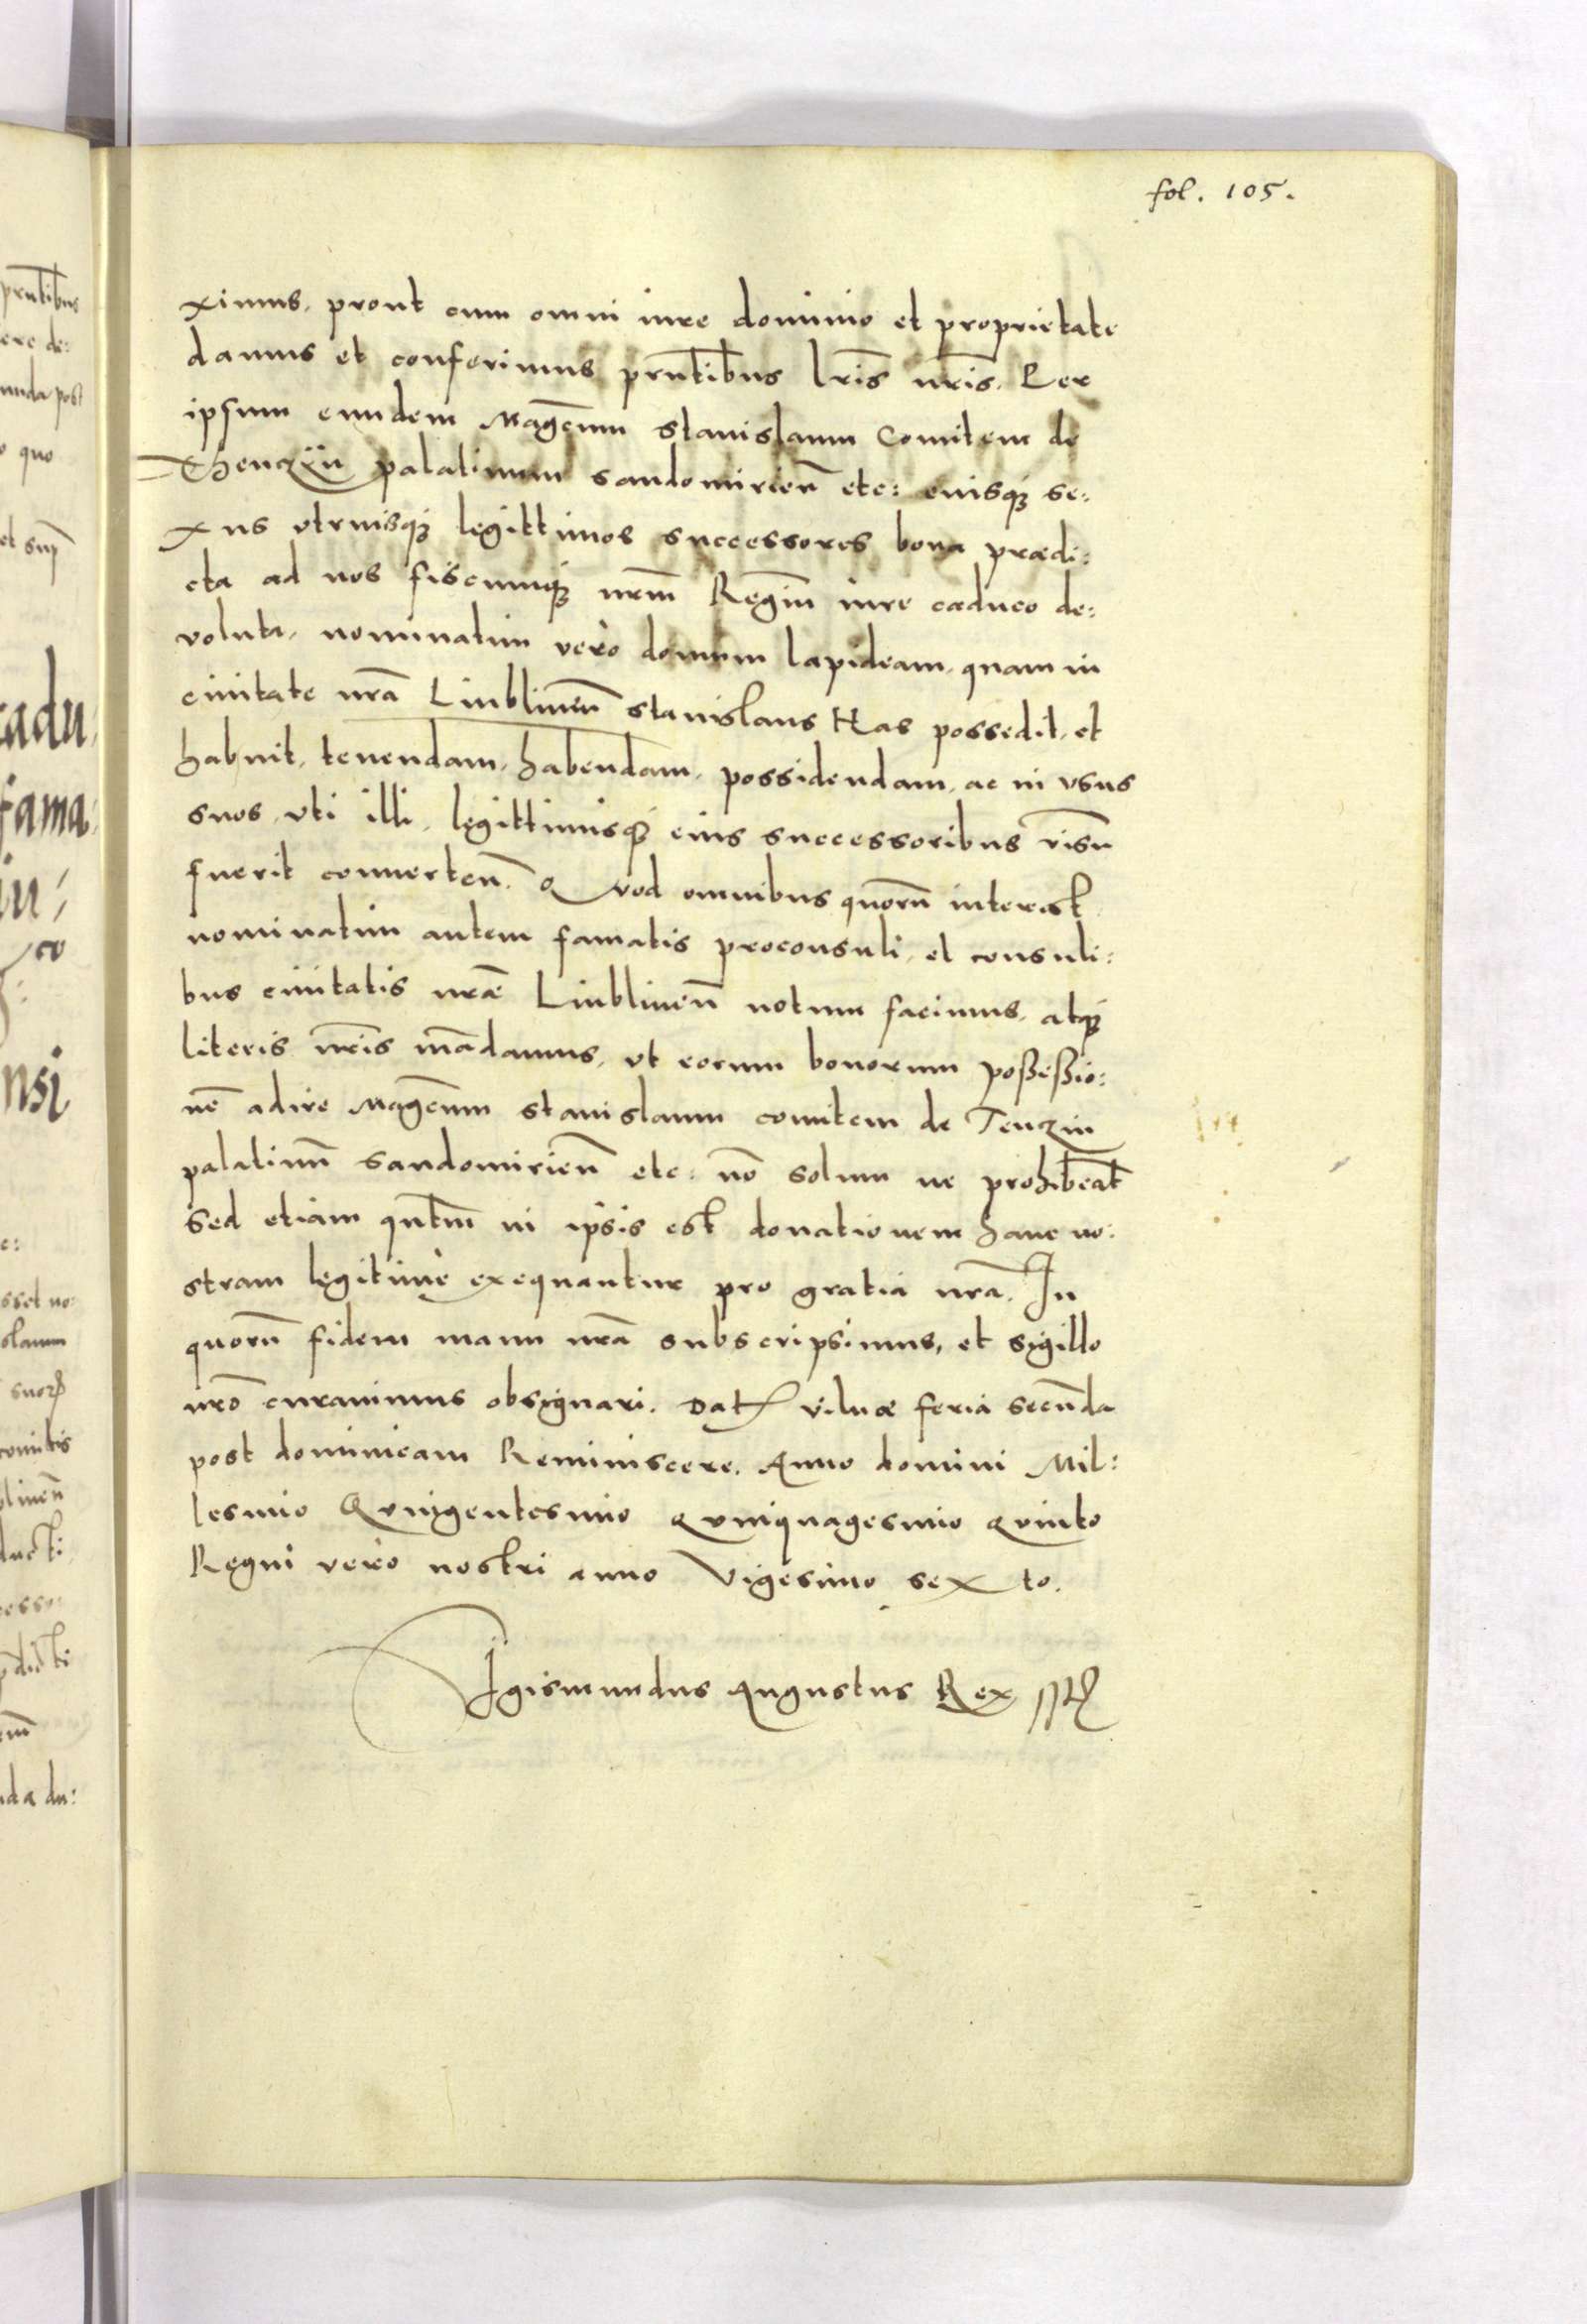 fol. 105.
ximus, prout cum omni iure dominio et proprietate
damus et conferimus prñtibus l̃ris nr̃is. Per
ipsum eundem Magc̃um Stanislaum Comitem de
Thenczÿn palatinum Sandomirien̄ etc: eiusq3 se:
xus vtriusq3 legittimos successores bona prædi:
cta ad nos fiscumq3 nr̃m Regiũm iure caduco de:
voluta, nominatim vero domum lapideam, quam in
ciuitate nr̃a Liublinen̄ Stanislaus Kas possedit, et
habuit, tenendam, habendam, possidendam, ac in vsus
suos, vti illi, legittimisq3 eius successoribus visū
fuerit conuerten̄. Quod omnibus quorū interest
nominatim autem famatis proconsuli, et consuli:
bus ciuitatis nr̃æ Liublinen̄ notum facimus, atq3
literis nr̃is mãdamus, vt eorum bonorum poßeßio:
nē adire Magc̃um Stanislaum comitem de Tenzin
palatinū Sandomirien̄ etc: nō solum ne prohibeãt
sed etiam quãtm̃ in ipsis est donationem hanc no:
stram legitimè exequantur pro gratia nr̃a. In
quorū fidem manu nr̃a subscripsimus, et sigillo
nr̃o curauimus obsignari. Dat Vilnæ feria secūda
post dominicam Reminiscere. Anno domini Mil:
lesimo Quingentesimo Quinquagesimo Quinto
Regni vero nostri anno Vigesimo sexto.
Sigismundus Augustus Rex sst